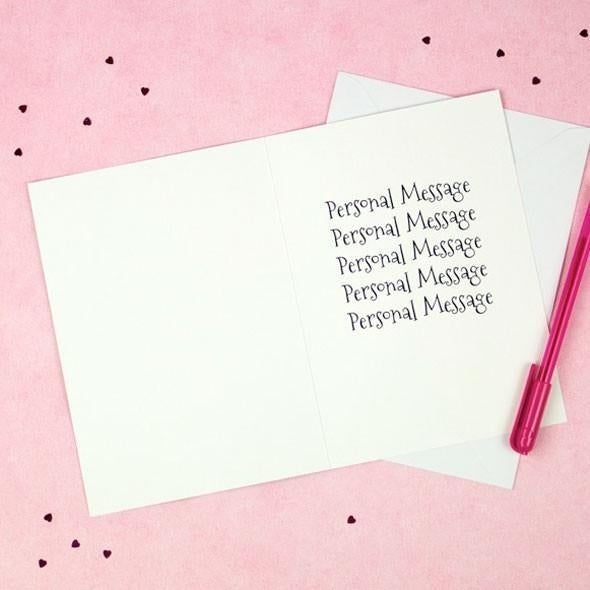 Personal Message
Personal Message
Personal Message
Personal Message
Personal Message